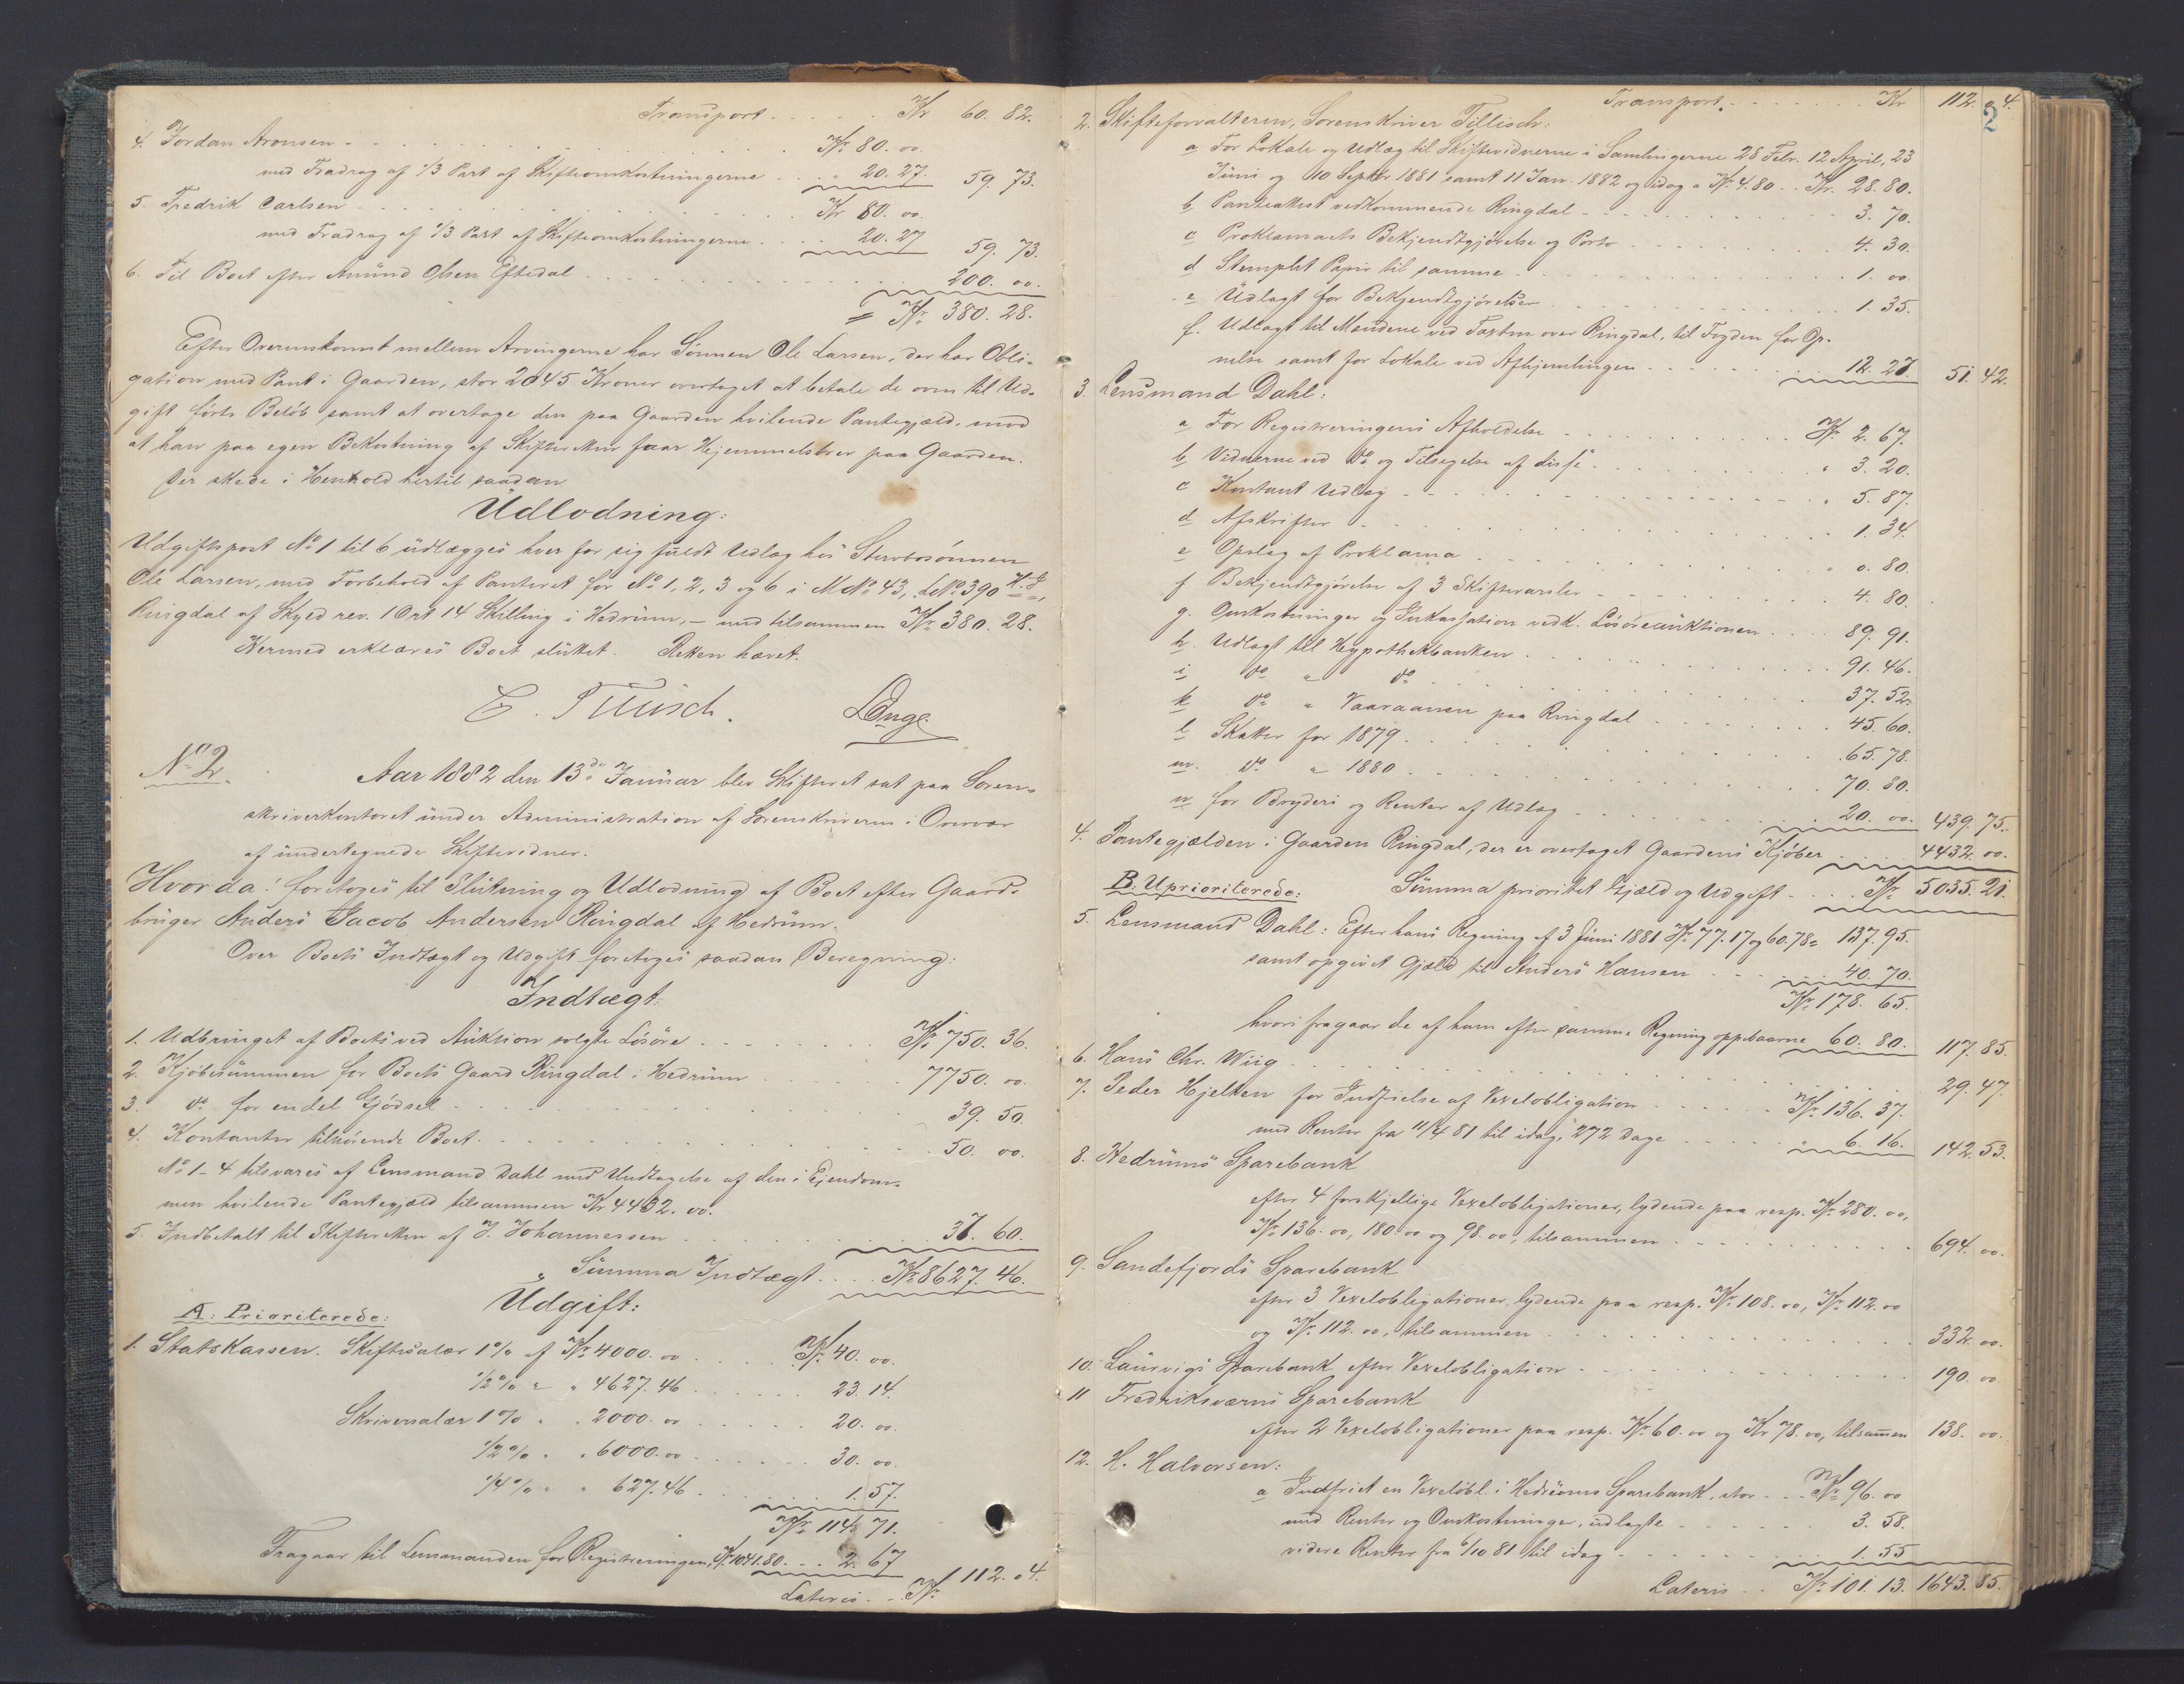 Transport . . . . . Kr 60. 82.
4. Jordan Aronsen . . . . . Kr. 80. 00.
med Fradrag af 1/3 Part af Skifteomkostningerne . . . 20. 27. 59. 73.
5. Fredrik Carlsen . . . . . Kr 80. 00.
med Fradrag af 1/3 Part af Skifteomkostningerne . . . 20. 27 59. 73.
6. Til Boet efter Amünd Olsen Eftedal . . . . . 200. 00.
= Kr. 380. 28.
Efter Overenskomst mellem Arvingerne har Sönnen Ole Larsen, der har Obli-
gation med Pant i Gaarden, stor 2045 Kroner overtaget at betale de oven til Ud-
gift förte Belöb samt at overtage den paa Gaarden hvilende Pantegjæld, mod
at han paa egen Bekostning af Skifteretten faar Hjemmelsbrev paa Gaarden.
Der skede i Henhold hertil saadan
Udlodning:
Udgiftspost No 1 til 6 üdlægges hver for sig füldt Udlæg hos Stervbosönnen
Ole Larsen, med Forbehold af Panteret for No 1, 2, 3 og 6 i M No 43, L No 390
Ringdal af Skyld rev. 1 Ort 14 Skilling i Hedrüm, – med tilsammen Kr. 380. 28.
Hermed erklæres Boet slüttet. Retten hævet.
C. Tillisch. Lange
No 2. Aar 1882 den 13de Januar blev Skifteret sat paa Soren-
skriverkontoret ünder Administration af Sorenskriveren i Overvær
af ündertegnede Skiftevidner.
Hvor da: foretoges til Slütning og Udlodning af Boet efter Gaard-
brüger Anders Jacob Andersen Ringdal af Hedrüm.
Over Boets Indtægt og Udgift foretoges saadan Beregning:
Indtægt:
1. Udbringet af Boets ved Auktion solgte Lösöre . . . . . Kr. 750. 36.
2. Kjöbesümmen for Boets Gaard Ringdal i Hedrüm . . . . . 7750. 00.
3. do for endel Gjödsel . . . . . 39. 50.
4. Kontanter tilhörende Boet . . . . . 50. 00.
No 1-4 tilsvares af Lensmand Dahl med Undtagelse af den i Ejendom-
men hvilende Pantegjæld tilsammen Kr 4432. 00.
5. Indbetalt til Skifteretten af J. Johannessen . . . . . 37. 60.
Sümma Indtægt . . . . Kr. 8627. 46.
Udgift:
A: Prioriterede:
1. Statskassen. Skiftesalær 1% af Kr. 4000. 00 . . . . Kr. 40. 00.
1/2% " " 4627. 46 . . . . . 23. 14.
Skriversalær 1% " " 2000. 00 . . . . . 20. 00.
1/2% " " 6000. 00 . . . . . 30. 00.
1/4% " " 627. 46 . . . . . 1. 57.
Kr. 114. 71.
Fragaar til Lensmanden for Registreringen, Kr 1041.80 . . . 2. 67 112. 04.
Lateris . . Kr.
Transport . . . . . Kr 112. 04.
2
2. Skifteforvalteren, Sorenskriver Tillisch:
a For Lokale og Udlæg til Skiftevidnerne i Samlingerne 28 Febr. 12 April, 23
Jüni og 10 Septbr. 1881 samt 11 Jan. 1882 og idag a Kr. 4. 80 . . Kr. 28. 80.
b Panteattest vedkommende Ringdal . . . . . 3. 70.
c Proklamaets Bekjendtgjörelse og Porto . . . . . 4. 30.
d Stemplet Papir til samme . . . . . 1. 00.
e Üdlagt for Bekjendtgjörelser . . . . . 1. 35.
f. Udlagt til Mændene ved Taxten over Ringdal, til Fogden for Op-
nelse samt for Lokale ved Afhjemlingen . . . . . 12. 27. 51. 42.
3. Lensmand Dahl:
a For Registreringens Afholdelse . . . . . Kr. 2. 67.
b Vidnerne ved do og Tilsigelse af disse . . . . . " 3. 20.
c Kontant Udlæg . . . . . " 5. 87.
d Afskrifter . . . . . 1. 34.
e Opslag af Proklama . . . . . " 0. 80.
f Bekjendtgjörelse af 3 Skiftevarsler . . . . . 4. 80.
g. Omkostninger og Inkassation vedk. Lösöreauktionen . . . . 89. 91.
h. Udlagt til Hypothekbanken . . . . . 91. 46.
i do " do . . . . . 37. 52.
k do " Vaaraanen paa Ringdal . . . . . 45. 60.
l Skatter for 1879 . . . . . 65. 78.
m. do " 1880 . . . . . 70. 80.
n for Bryderi og Renter af Udlæg . . . . . 20. 00. 439. 75.
4. Pantegjælden i Gaarden Ringdal, der er overtaget Gaardens Kjöber . . . . 4432. 00.
Sümma prioritet Gjæld og Udgift . . . . Kr. 5035. 21.
B. Uprioriterede:
5. Lensmand Dahl: Efter hans Regning af 3 Jüni 1881 Kr. 77. 17 og 60. 78 = 137. 95.
samt opgivet Gjæld til Anders Hansen . . . . . 40. 70.
Kr. 178. 65.
hvori fragaar de af ham efter samme Regning oppebaarne 60. 80. 117. 85.
6. Hans Chr. Wiig . . . . . 29. 47.
7. Peder Hjelten for Indfrielse af Vexelobligation . . . . . Kr. 136. 37.
med Renter fra 11/4 81 til idag, 272 Dage . . . . . " 6. 16. 142. 53.
8. Hedrüms Sparebank
efter 4 forskjellige Vexelobligationer, lydende paa resp. Kr. 280. 00,
Kr. 136. 00, 180. 00 og 98. 00, tilsammen . . . . . 694. 00.
9. Sandefjords Sparebank
efter 3 Vexelobligationer, lydende paa resp. Kr. 108. 00, Kr. 112. 00
og Kr. 112. 00, tilsammen . . . . . 332. 00.
10. Laürvigs Sparebank efter Vexelobligation . . . . . 190. 00.
11 Fredriksværns Sparebank
efter 2 Vexelobligationer paa resp. Kr. 60. 00 og Kr 78. 00, tilsammen 138. 00.
12. H. Halvorsen:
a Indfriet en Vexelobl. i Hedrüms Sparebank, stor . . . Kr. 96. 00
med Renter og Omkostninger, udlagte . . . . . 3. 58.
videre Renter fra 6/10 81 til idag . . . . . 1. 55
Lateris . . Kr. 101. 13. 1643. 85.